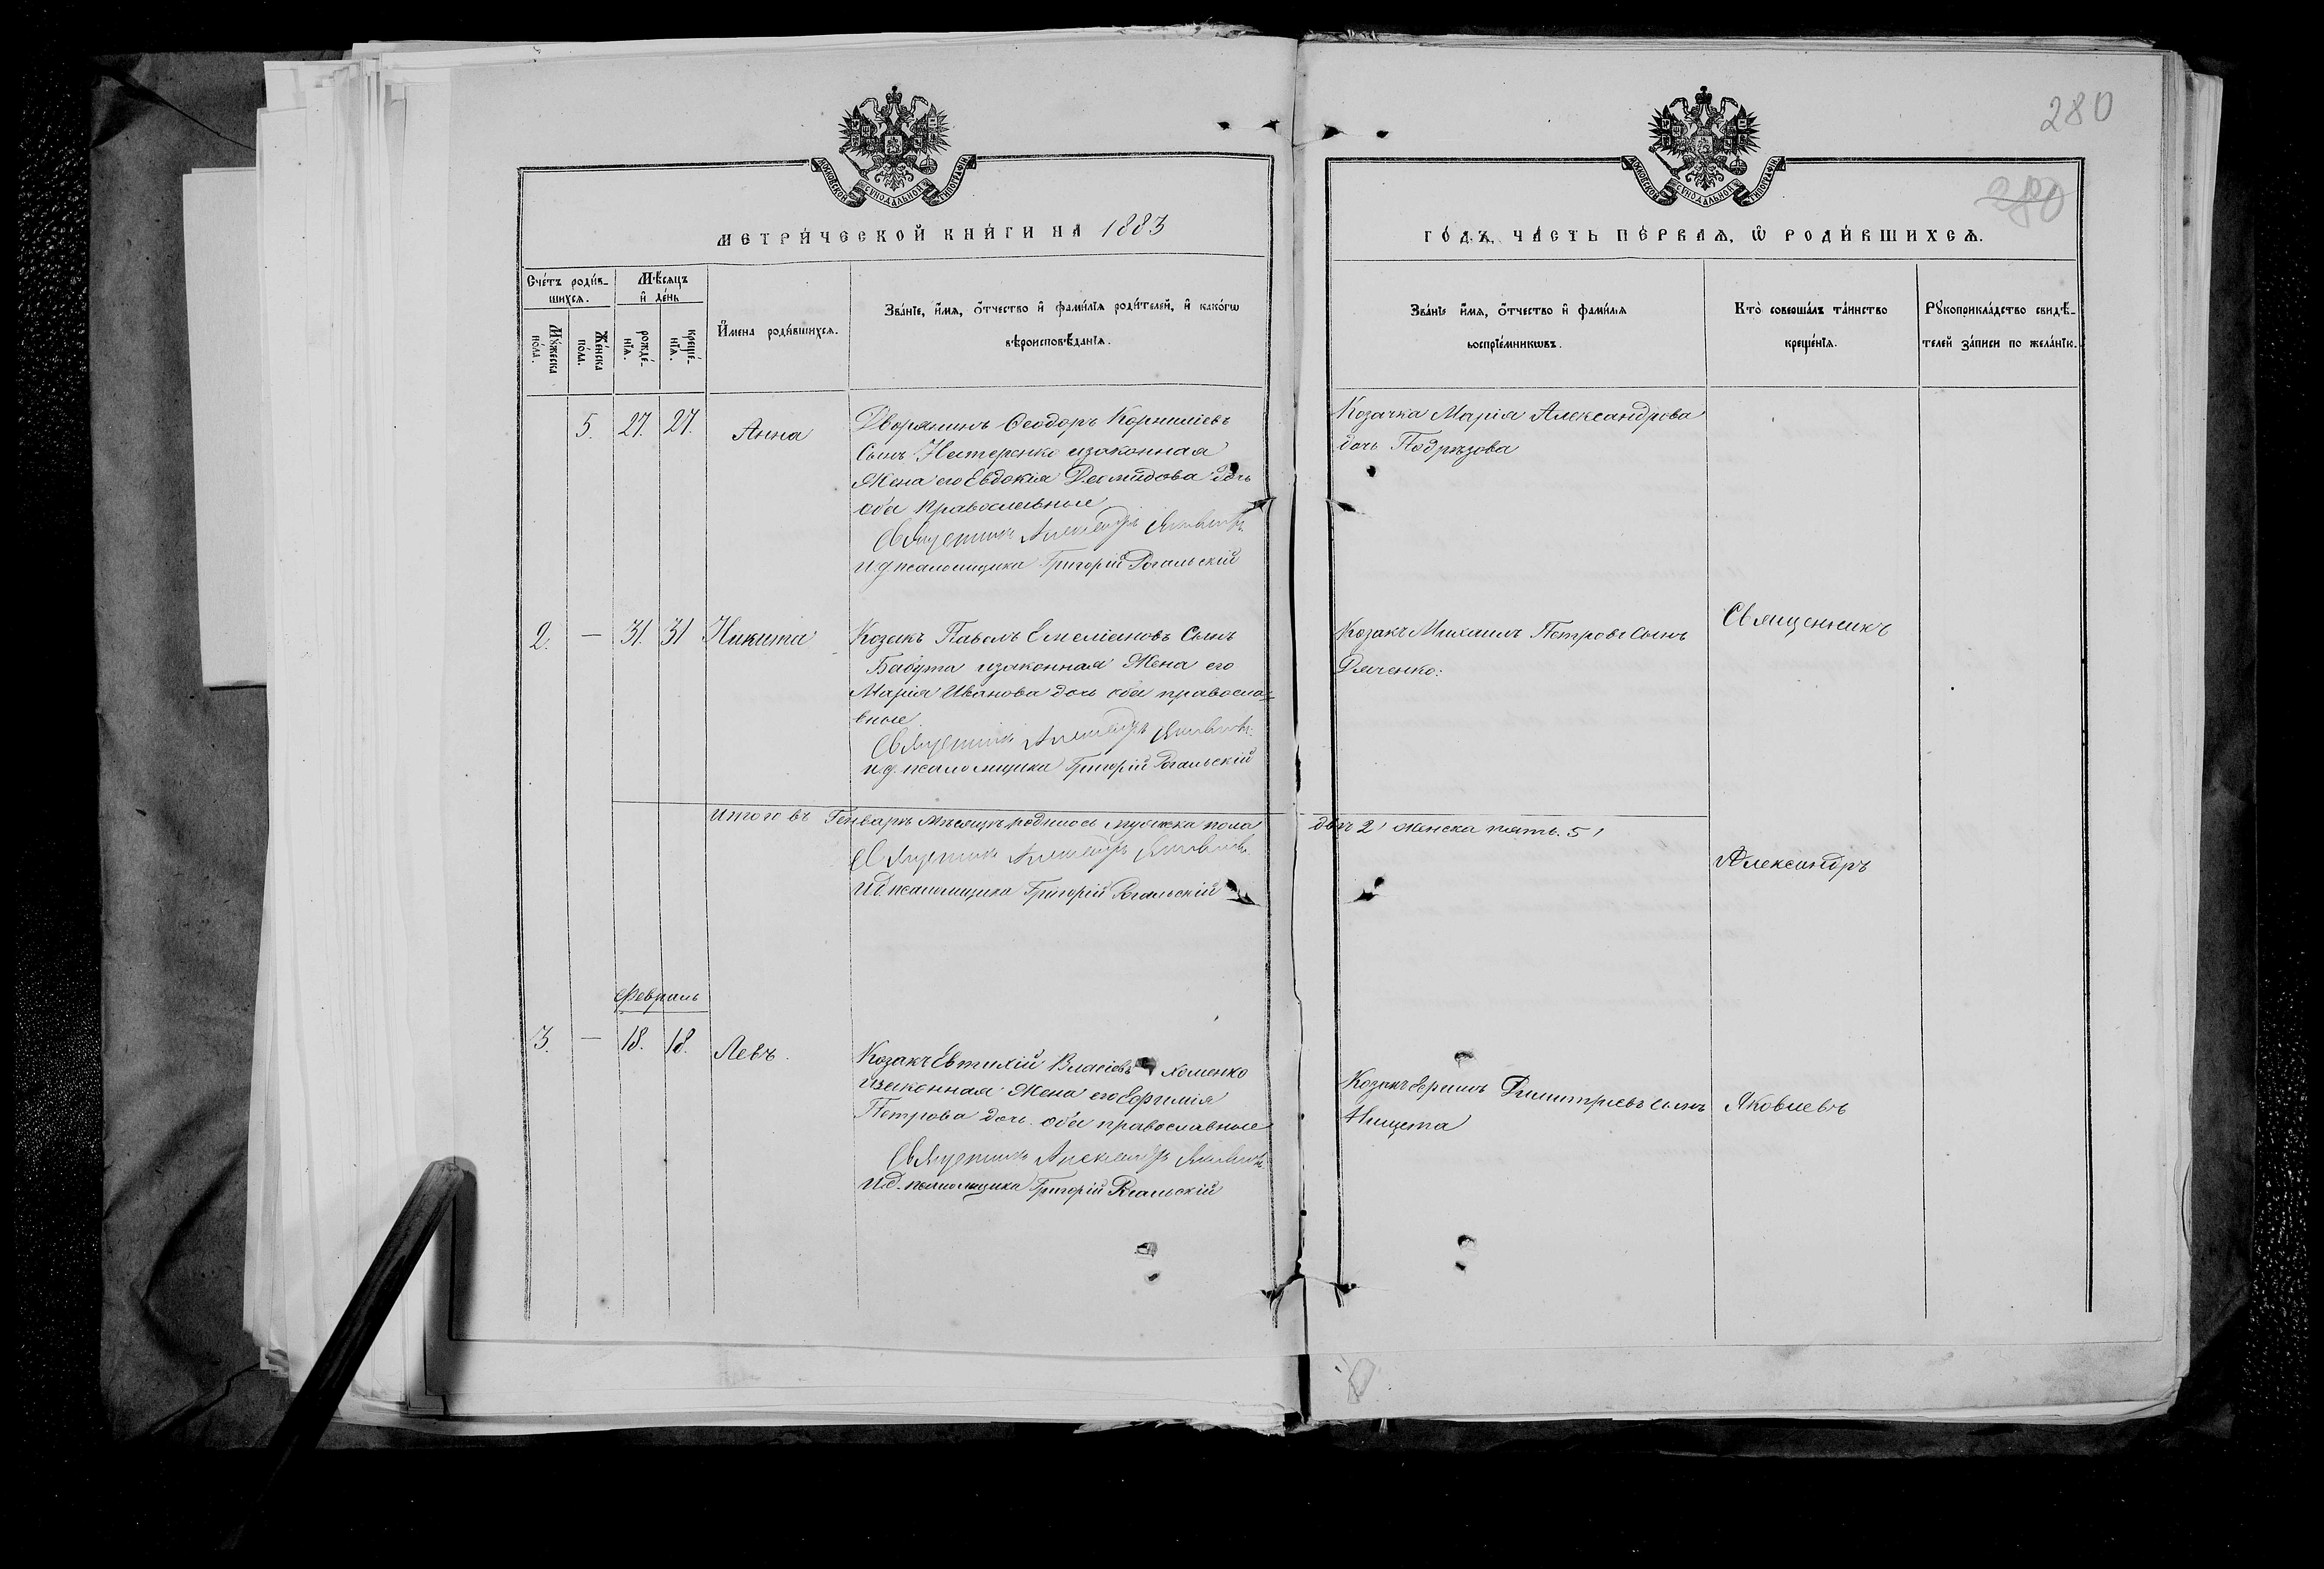 280
280
МОСКОВСКОЙ СУНОДАЛЬНОЙ ТИПОГРАФІИ
МОСКОВСКОЙ СУНОДАЛЬНОЙ ТИПОГРАФІИ
МЕТРИ́ЧЕСКОЙ КНИ́ГИ НА 1883
ГО́ДЪ, ЧА́СТЬ ПЕ́РВАЯ, Ѡ РОДИ́ВШИХСЯ.
Сче́тъ роди́в-
шихся.
Мѣ́сяцъ
и де́нь
Мꙋ́жеска
по́ла.
Же́нска
по́ла.
рожде́-
нїя.
креще́-
нїя.
И҆мена роди́вшихся.
Зва́нїе, и҆́мя, ѻ҆́тчество и҆ фами́лїя роди́телей, и҆ како́гѡ
вѣроисповѣ́данїя.
Зва́нїе и҆́мя, ѻ҆́тчество и҆ фами́лїя
воспрїе́мникѡвъ.
Кто̀ соверша́лъ та́инство
креще́нїя.
Рꙋкоприкла́дство свидѣ́-
телей за́писи по жела́нїю.
5. 27. 27. Анна
Дворянинъ Ѳеодоръ Корниліевъ
Сынъ Нестеренко изаконная
Жена его Евдокія Демидова дочь
оба православные
Священникъ Александръ Яковлевъ
И.д. псаломщика Григорій Рогальскій
Козачка Марія Александрова
дочь Подрѣзова
2. — 31. 31 Никита
Козакъ Павелъ Емеліановъ Сынъ
Бабута изаконная Жена его
Марія Иванова дочь оба правосла-
вные
Священникъ Александръ Яковлевъ
и.д. псаломщика Григорій Рогальскій
Козакъ Михаилъ Петровъ Сынъ
Дяченко:
Священникъ
Итого въ Генварѣ мѣсяцѣ родилось мужеска пола два 2, женска пять. 5,
Священникъ Александръ Яковлевъ
И.д. псаломщика Григорій Рогальскій
Александръ
Февраль
3. — 18. 18. Левъ.
Козакъ Евтихій Власіевъ Хоменко
изаконная Жена его Ефимія
Петрова дочь оба православные
Священникъ Александръ Яковлевъ
И.д. псаломщика Григорій Рогальскій
Козакъ Димитріевъ Сынъ
Нищета
Яковлевъ